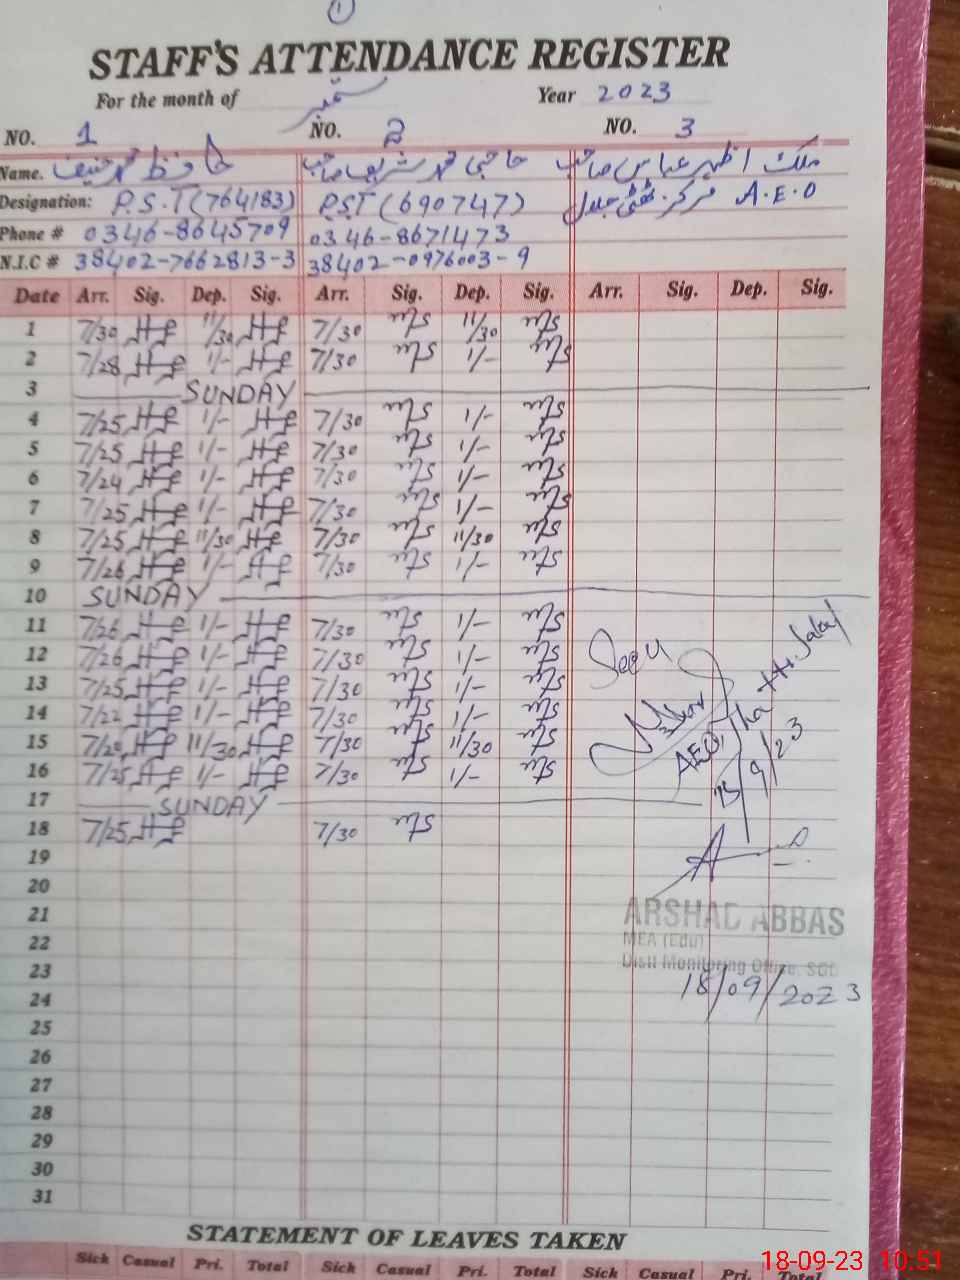 1
STAFF'S ATTENDANCE REGISTER
For the month of ستمبر Year 2023
NO. 1 NO. 2 NO. 3
Name. حافظ محمد حنیف حاجی محمد شریف صاحب ملک اظہر عباس صاحب
Designation: P.S.T (764183) P.S.T (690747) A.E.O مرکز
Phone # 0346-8645709 0346-8671473
N.I.C # 38402-7662813-3 38402-0976003-9
Date Arr. Sig. Dep. Sig. Arr. Sig. Dep. Sig. Arr. Sig. Dep. Sig.
1 7/30 11/30 7/30 11/30
2 7/28 1/- 7/30 1/-
3 SUNDAY
4 7/25 1/- 7/30 1/-
5 7/25 1/- 7/30 1/-
6 7/24 1/- 7/30 1/-
7 7/25 1/- 7/30 1/-
8 7/25 11/30 7/30 11/30
9 7/26 1/- 7/30 1/-
10 SUNDAY
11 7/26 1/- 7/30 1/-
12 7/26 1/- 7/30 1/-
13 7/25 1/- 7/30 1/-
14 7/22 1/- 7/30 1/-
15 7/20 11/30 7/30 11/30
16 7/25 1/- 7/30 1/-
17 SUNDAY
18 7/25 7/30
19
20
21
22
23
24
25
26
27
28
29
30
31
Seen
AEO
/9/23
ARSHAD ABBAS
MEA (Edu)
Distt Monitoring Office, SGD
18/09/2023
STATEMENT OF LEAVES TAKEN
Sick Casual Pri. Total Sick Casual Pri. Total Sick Casual Pri. Total
18-09-23 10:51